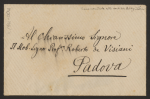 Al Chiarissimo Signore
Il Nob. Sigr. Profr. Roberto de Visiani
Padova